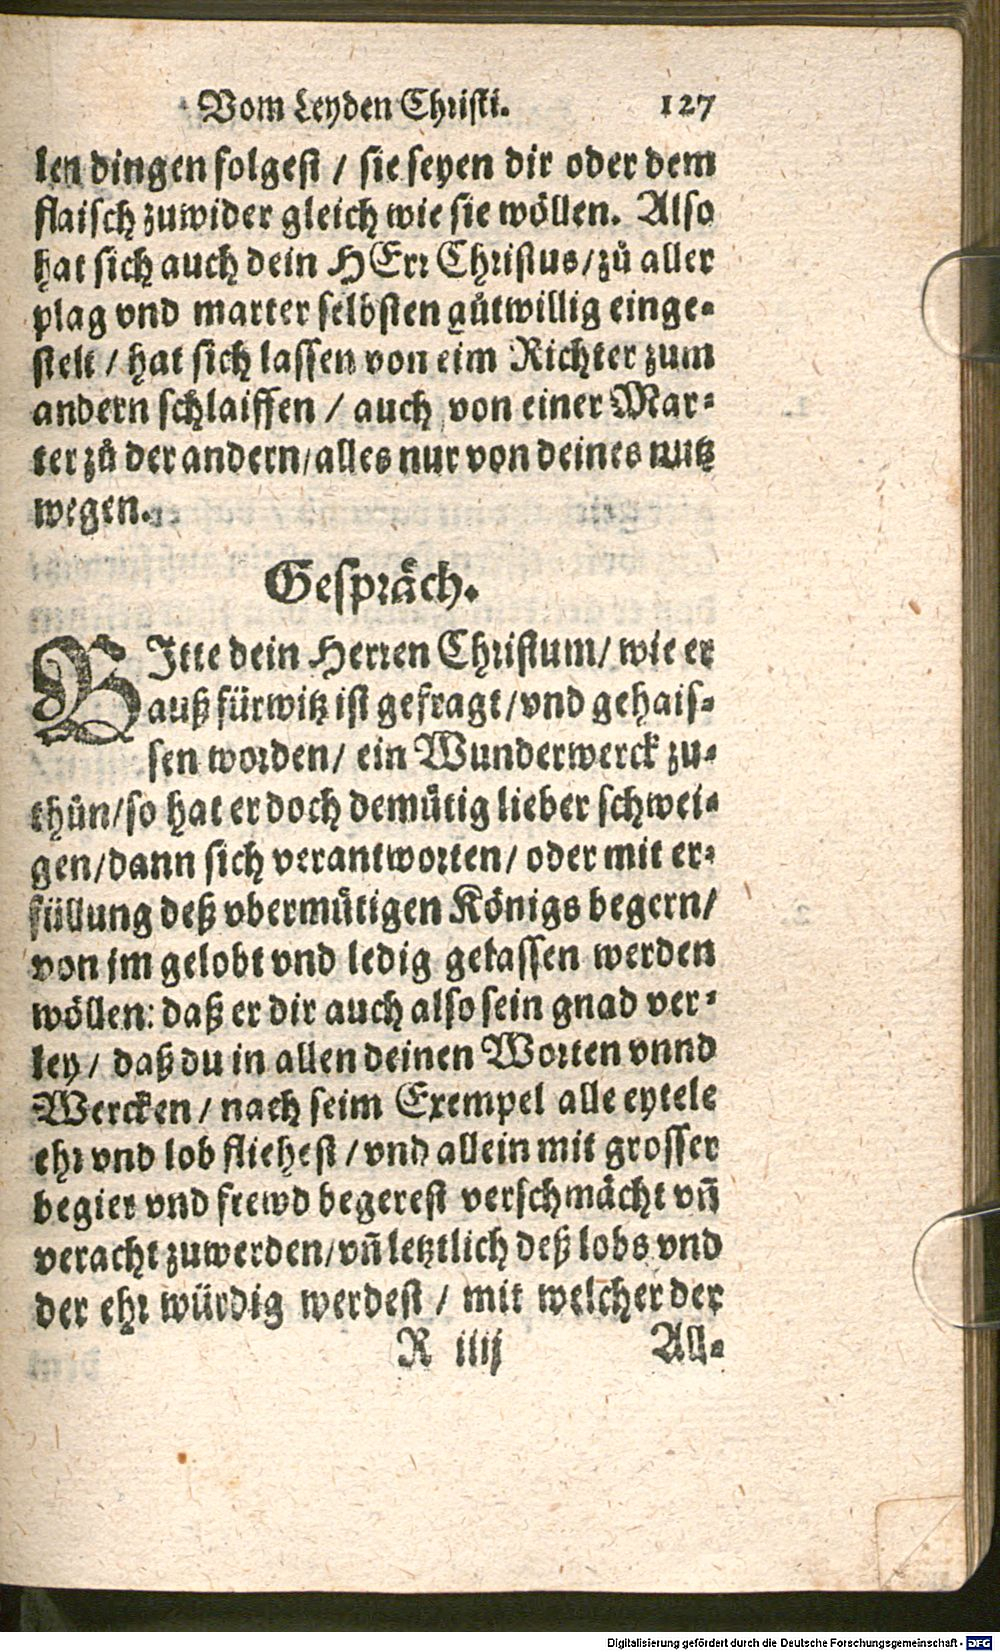 Vom Leyden Christi. 127
len dingen folgest / sie seyen dir oder dem
flaisch zuwider gleich wie sie wöllen. Also
hat sich auch dein HErr Christus / zů aller
plag vnd marter selbsten gůtwillig einge⸗
stelt / hat sich lassen von eim Richter zum
andern schlaiffen / auch von einer Mar⸗
ter zů der andern / alles nur von deines nutz
wegen.
Gespräch.
BItte dein Herren Christum / wie er
auß fürwitz ist gefragt / vnd gehais⸗
sen worden / ein Wunderwerck zu⸗
thůn / so hat er doch demůtig lieber schwei⸗
gen / dann sich verantworten / oder mit er⸗
füllung deß vbermůtigen Königs begern /
von jm gelobt vnd ledig gelassen werden
wöllen: daß er dir auch also sein gnad ver⸗
ley / daß du in allen deinen Worten vnnd
Wercken / nach seim Exempel alle eytele
ehr vnd lob fliehest / vnd allein mit grosser
begier vnd frewd begerest verschmächt vñ
veracht zuwerden / vñ letztlich deß lobs vnd
der ehr würdig werdest / mit welcher der
R iiij All⸗
Digitalisierung gefördert durch die Deutsche Forschungsgemeinschaft - DFG